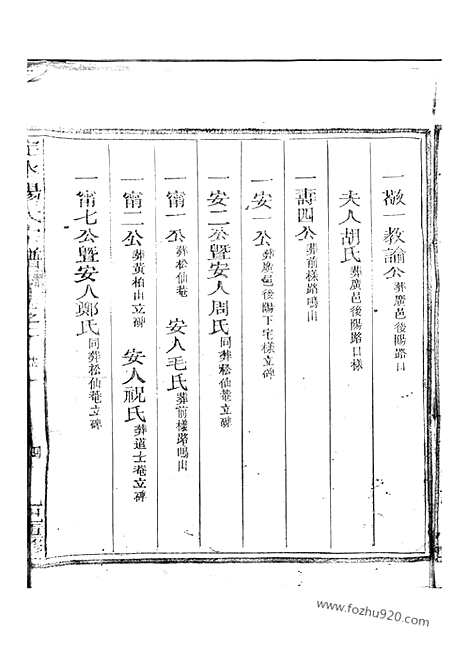 一敬一教諭公葬廣邑後陽路口
夫人胡氏葬廣邑後陽路口樣
一壽四公葬前樣路鳴山
一安一公葬廣邑後陽下宅樣立碑
一安二公暨安人周氏同葬松仙菴立碑
一甯一公葬松仙菴 安人毛氏葬前樣路鳴山
一甯二公葬黃柏山立碑 安人祝氏葬道士菴立碑
一甯七公暨安人鄭氏同葬松仙菴立碑
www.fozhu920.com